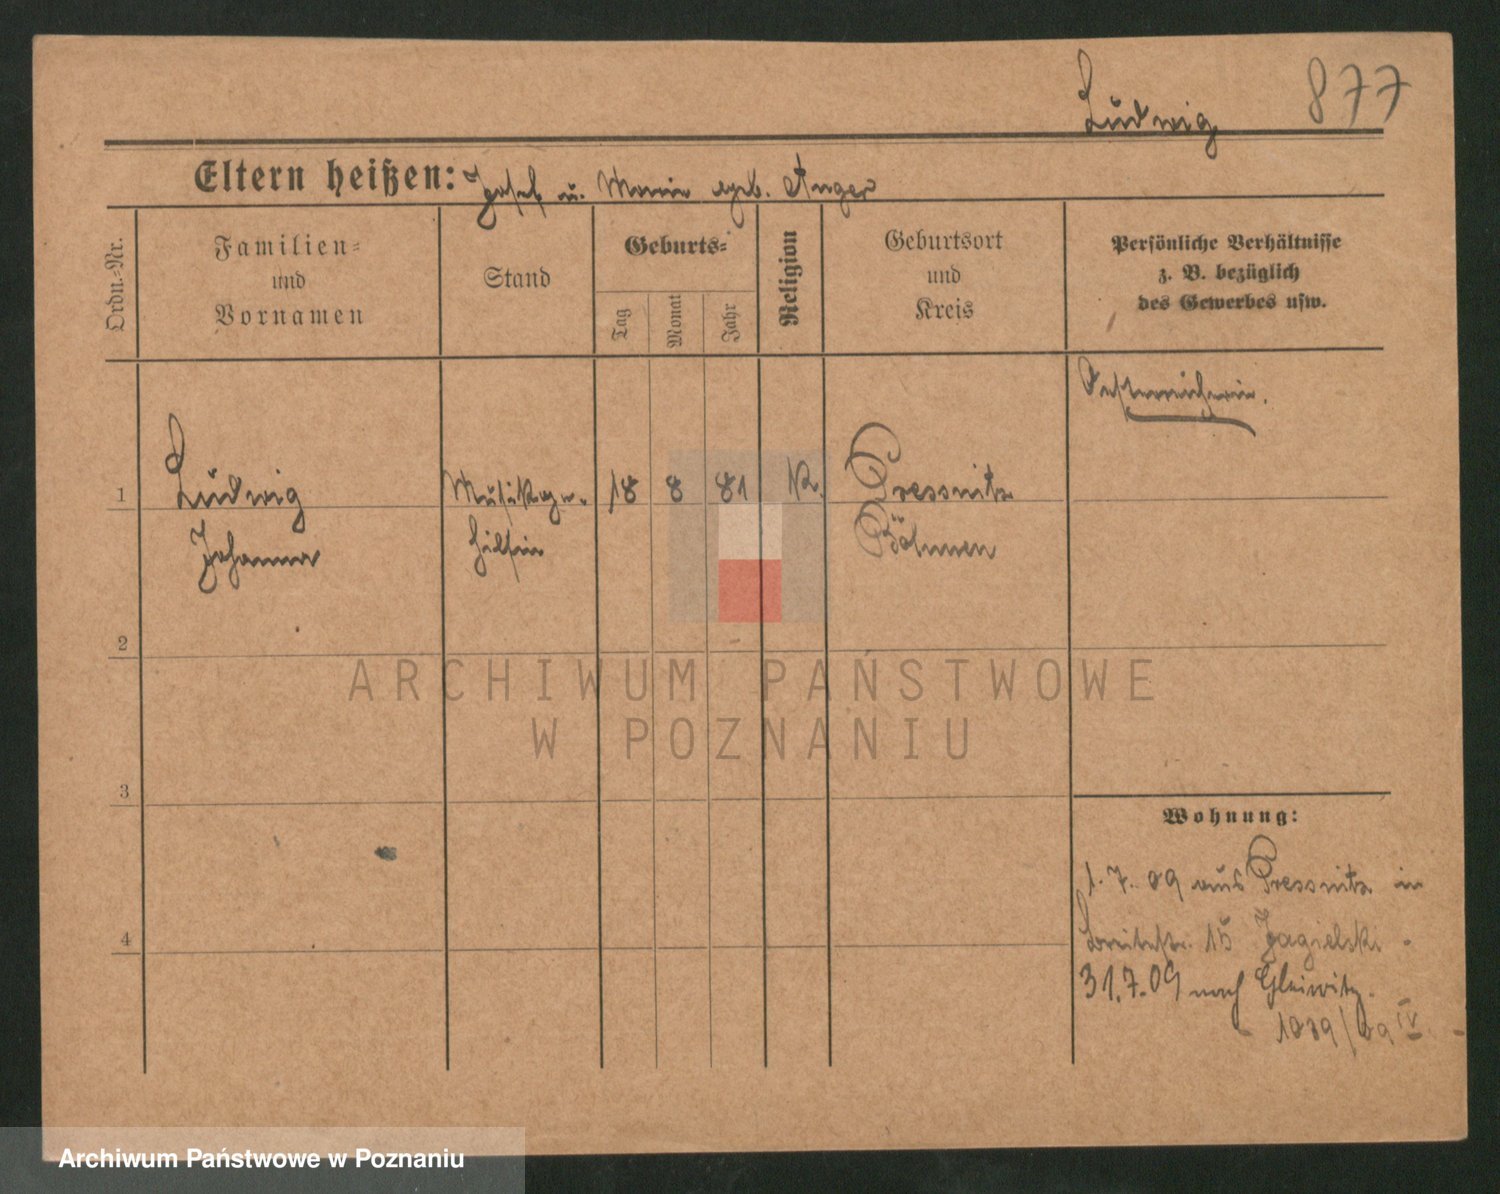 Ludwig 877
Eltern heißen: Josef u. Marie geb. Anger
Ordn.=Nr.
Familien=
und
Vornamen
Stand
Geburts=
Tag
Monat
Jahr
Religion
Geburtsort
und
Kreis
Persönliche Verhältnisse
z. B. bezüglich
des Gewerbes usw.
Oesterreicherin.
1 Ludwig Musikge- 18 8 81 K. Pressnitz
Johanna hilfin Böhmen
2
ARCHIWUM PAŃSTWOWE
W POZNANIU
3
Wohnung:
1.7.09 aus Pressnitz in
4 Breitestr. 15 Jagielski.
31.7.09 nach Gleiwitz.
/09 IV
Archiwum Państwowe w Poznaniu